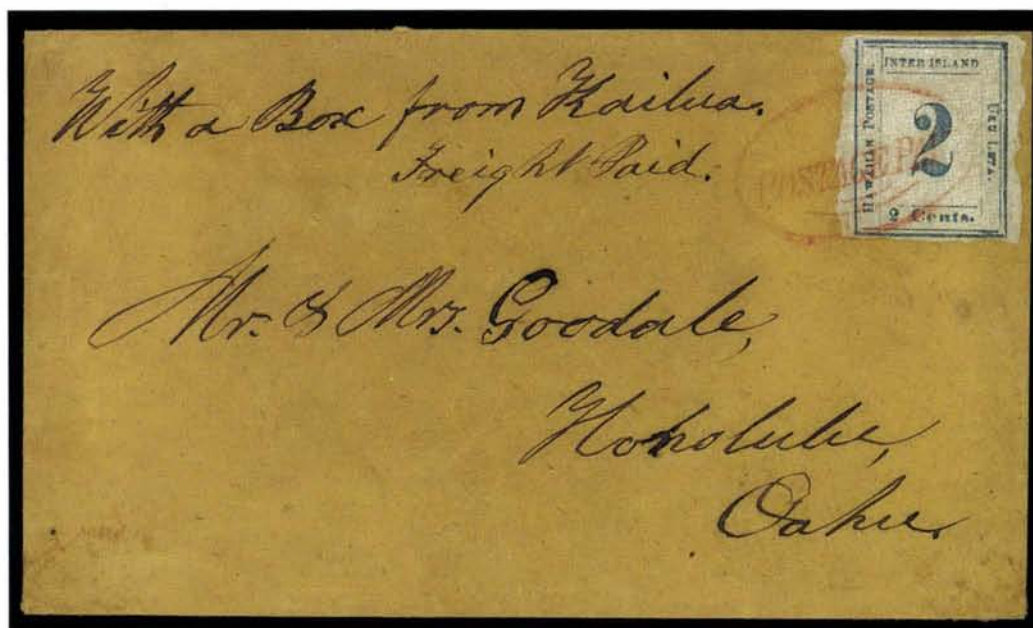 With a Box from Kailua.
Freight Paid.
INTER ISLAND
HAWAIIAN POSTAGE.
2
UKU LETA.
2 Cents.
POSTAGE PA
Mr. & Mrs. Goodale,
Honolulu,
Oahu.